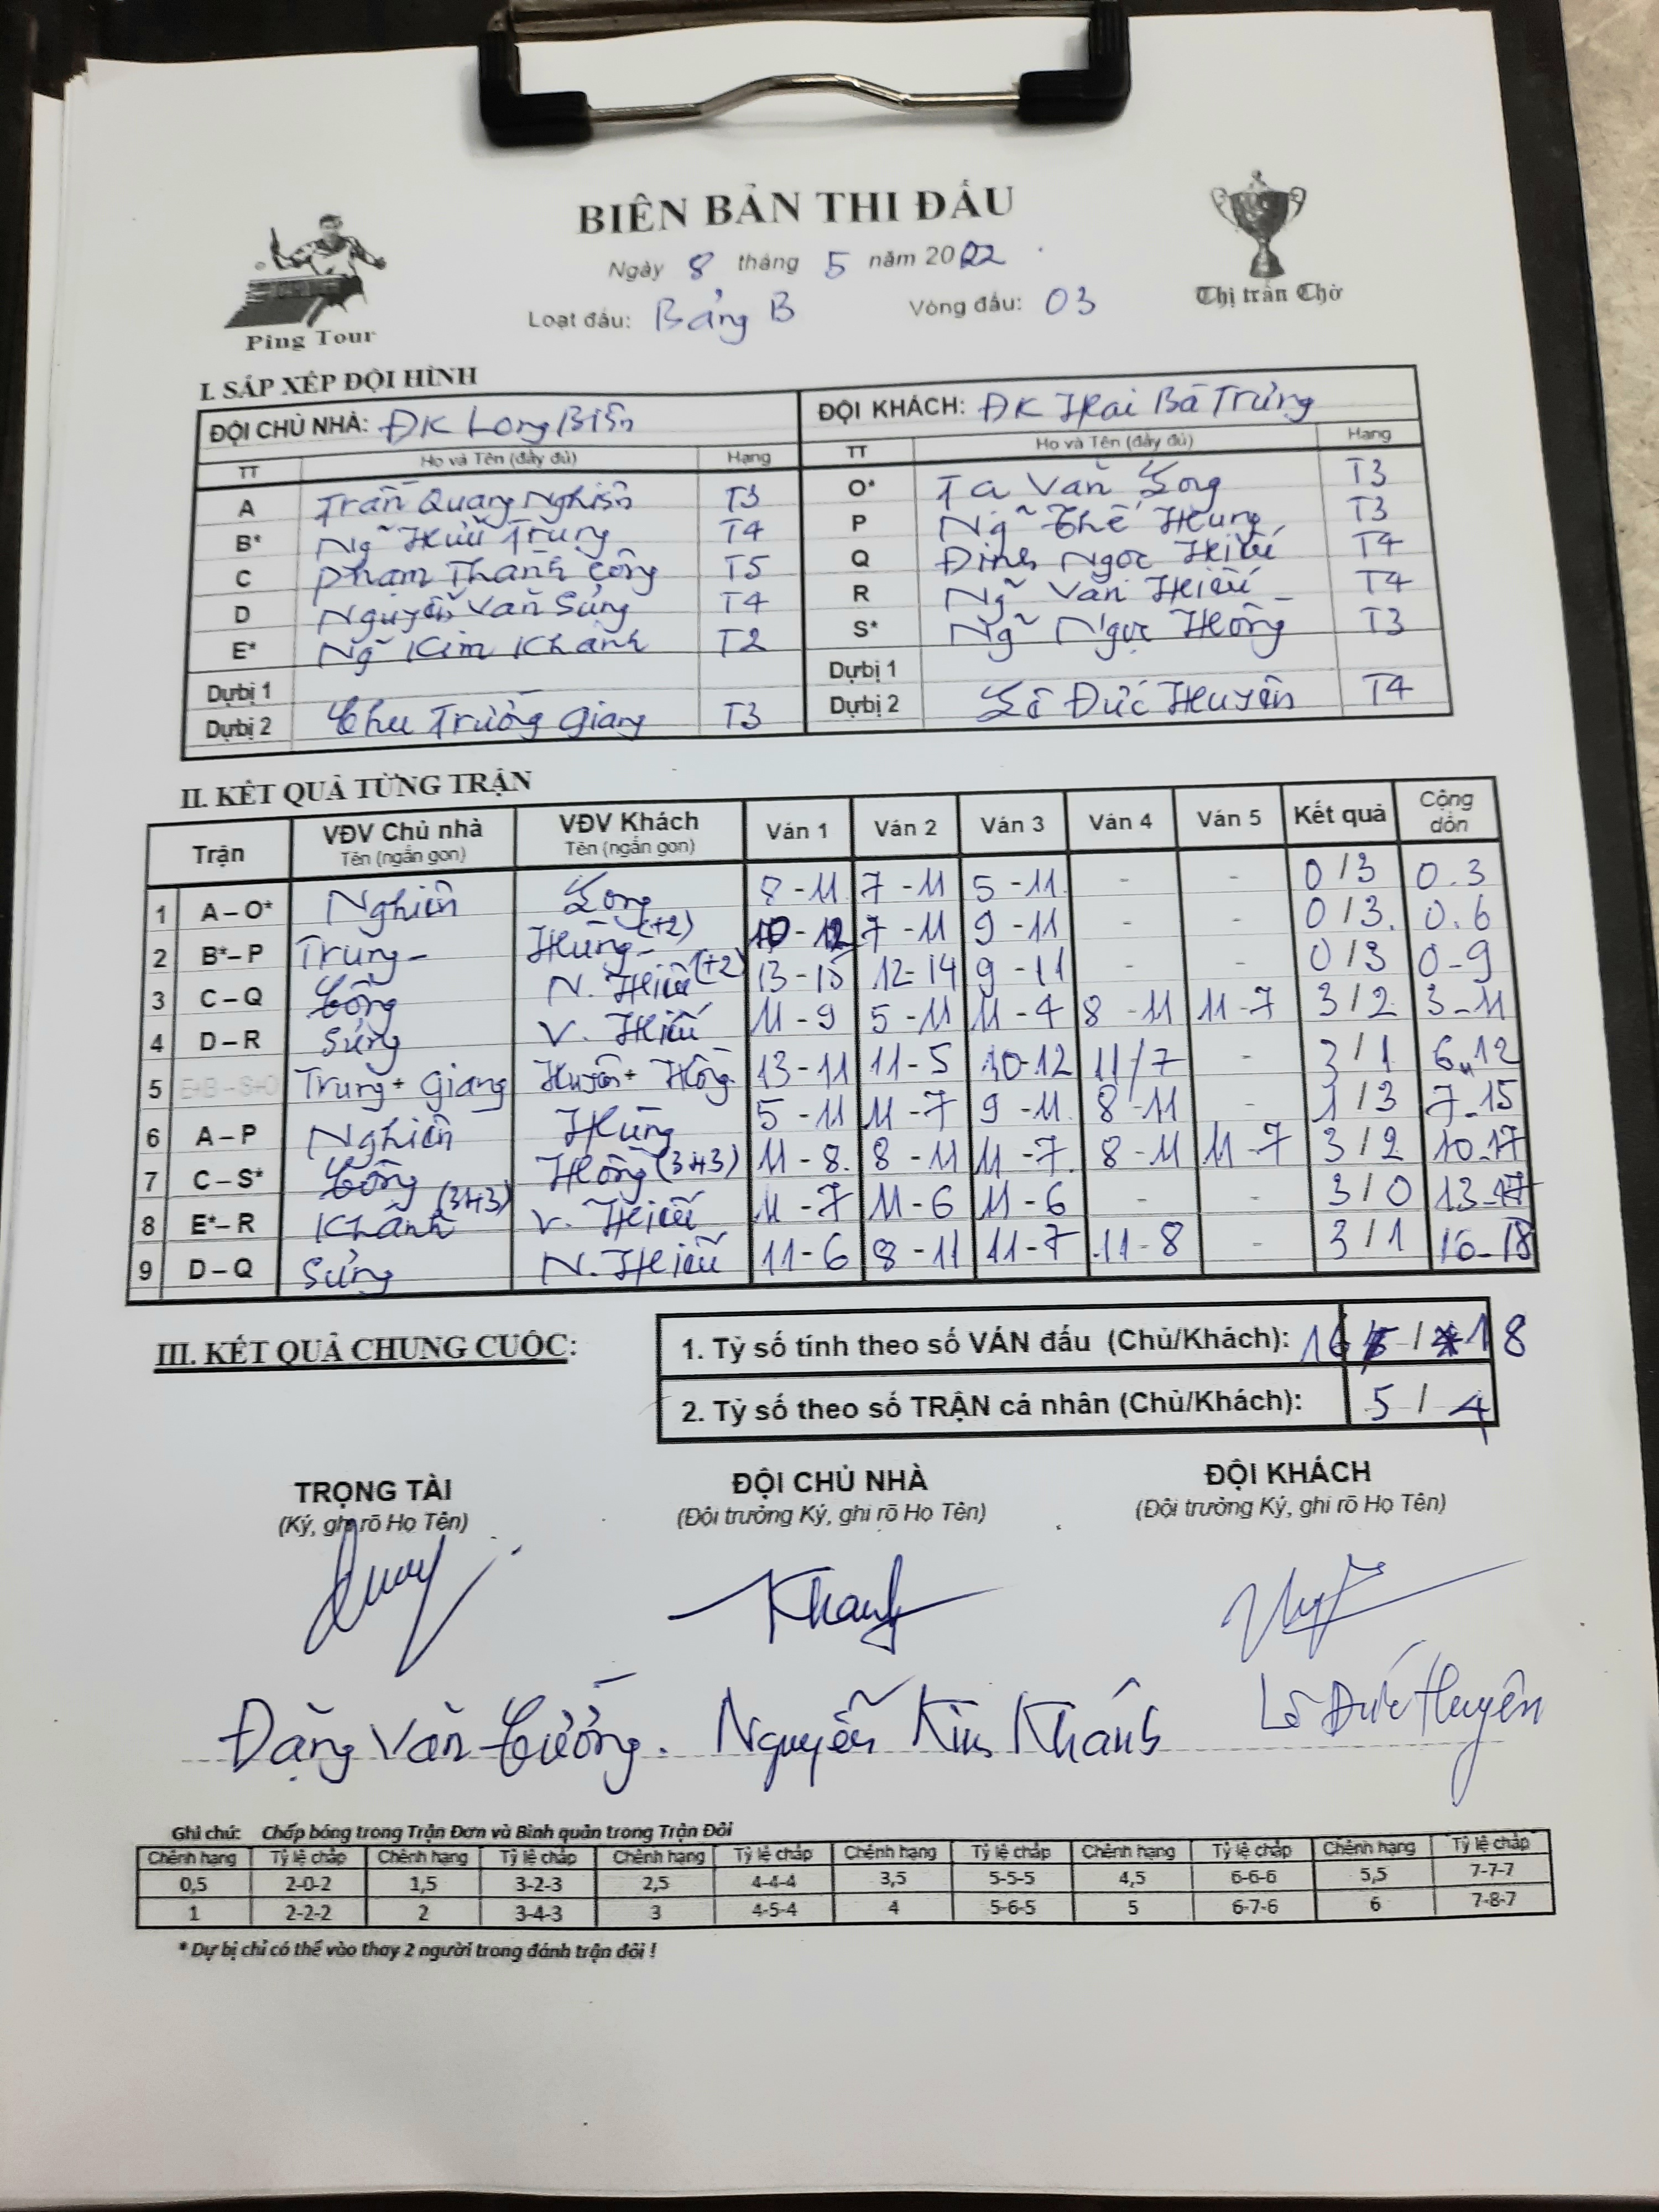 BIÊN BẢN THI ĐẤU
Ngày 8 tháng 5 năm 2022
Loạt đấu: Bảng B Vòng đấu: 03
Ping Tour
Thị trấn Chờ
I. SẮP XẾP ĐỘI HÌNH
ĐỘI CHỦ NHÀ: ĐK Long Biên ĐỘI KHÁCH: ĐK Hai Bà Trưng
TT Họ và Tên (đầy đủ) Hạng TT Họ và Tên (đầy đủ) Hạng
A Trần Quang Nghiên T3 O* Tạ Văn Long T3
B* Ng~ Hữu Trung T4 P Ng~ Thế Hưng T3
C Phạm Thành Công T5 Q Đinh Ngọc Hiếu T4
D Nguyễn Văn Sửng T4 R Ng~ Văn Hiếu T4
E* Ng~ Kim Khánh T2 S* Ng~ Ngọc Hồng T3
Dự bị 1 Dự bị 1
Dự bị 2 Chu Trường Giang T3 Dự bị 2 Lê Đức Huyên T4
II. KẾT QUẢ TỪNG TRẬN
Trận VĐV Chủ nhà Tên (ngắn gọn) VĐV Khách Tên (ngắn gọn) Ván 1 Ván 2 Ván 3 Ván 4 Ván 5 Kết quả Cộng dồn
1 A – O* Nghiên Long 8 - 11 7 - 11 5 - 11 - - 0 / 3 0 . 3
2 B* – P Trung - Hưng - (+2) 10 - 12 7 - 11 9 - 11 - - 0 / 3. 0 . 6
3 C – Q Công N. Hiếu (+2) 13 - 15 12 - 14 9 - 11 - - 0 / 3 0 - 9
4 D – R Sửng V. Hiếu 11 - 9 5 - 11 11 - 4 8 - 11 11 - 7 3 / 2 3 - 11
5 E+B – S+O Trung + Giang Huyên + Hồng 13 - 11 11 - 5 10 - 12 11 / 7 - 3 / 1 6 - 12
6 A – P Nghiên Hưng 5 - 11 11 - 7 9 - 11 8 - 11 - 1 / 3 7 - 15
7 C – S* Công Hồng (343) 11 - 8. 8 - 11 11 - 7. 8 - 11 11 - 7 3 / 2 10 - 17
8 E* – R Khánh (343) V. Hiếu 11 - 7 11 - 6 11 - 6 - - 3 / 0 13 - 17
9 D – Q Sửng N. Hiếu 11 - 6 8 - 11 11 - 7 11 - 8 - 3 / 1 16 - 18
III. KẾT QUẢ CHUNG CUỘC:
1. Tỷ số tính theo số VÁN đấu (Chủ/Khách): 16 / 18
2. Tỷ số theo số TRẬN cá nhân (Chủ/Khách): 5 / 4
TRỌNG TÀI ĐỘI CHỦ NHÀ ĐỘI KHÁCH
(Ký, ghi rõ Họ Tên) (Đội trưởng Ký, ghi rõ Họ Tên) (Đội trưởng Ký, ghi rõ Họ Tên)
Khanh
Đặng Văn Cường. Nguyễn Kim Khánh Lê Đức Huyên
Ghi chú: Chấp bóng trong Trận Đơn và Bình quân trong Trận Đôi
Chênh hạng Tỷ lệ chấp Chênh hạng Tỷ lệ chấp Chênh hạng Tỷ lệ chấp Chênh hạng Tỷ lệ chấp Chênh hạng Tỷ lệ chấp Chênh hạng Tỷ lệ chấp
0,5 2-0-2 1,5 3-2-3 2,5 4-4-4 3,5 5-5-5 4,5 6-6-6 5,5 7-7-7
1 2-2-2 2 3-4-3 3 4-5-4 4 5-6-5 5 6-7-6 6 7-8-7
* Dự bị chỉ có thể vào thay 2 người trong đánh trận đôi !